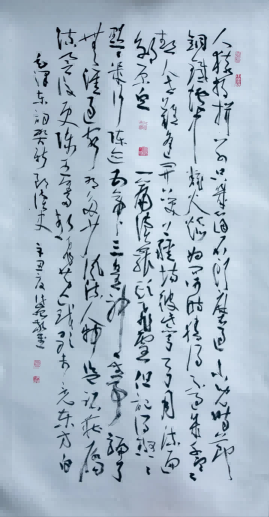 人猿相揖别只几个石头磨过小儿时节
铜铁炉中翻火焰为问何时猜得不过几千寒
热人世难逢开口笑上疆场彼此弯弓月流遍
了郊原血
一篇读罢头飞雪但记得斑斑
点点几行陈迹五帝三皇神圣事骗了
无涯过客有多少风流人物盗跖庄屩
流誉后更陈王奋起挥黄钺歌未竟东方白
毛泽东词贺新郎读史 辛丑夏